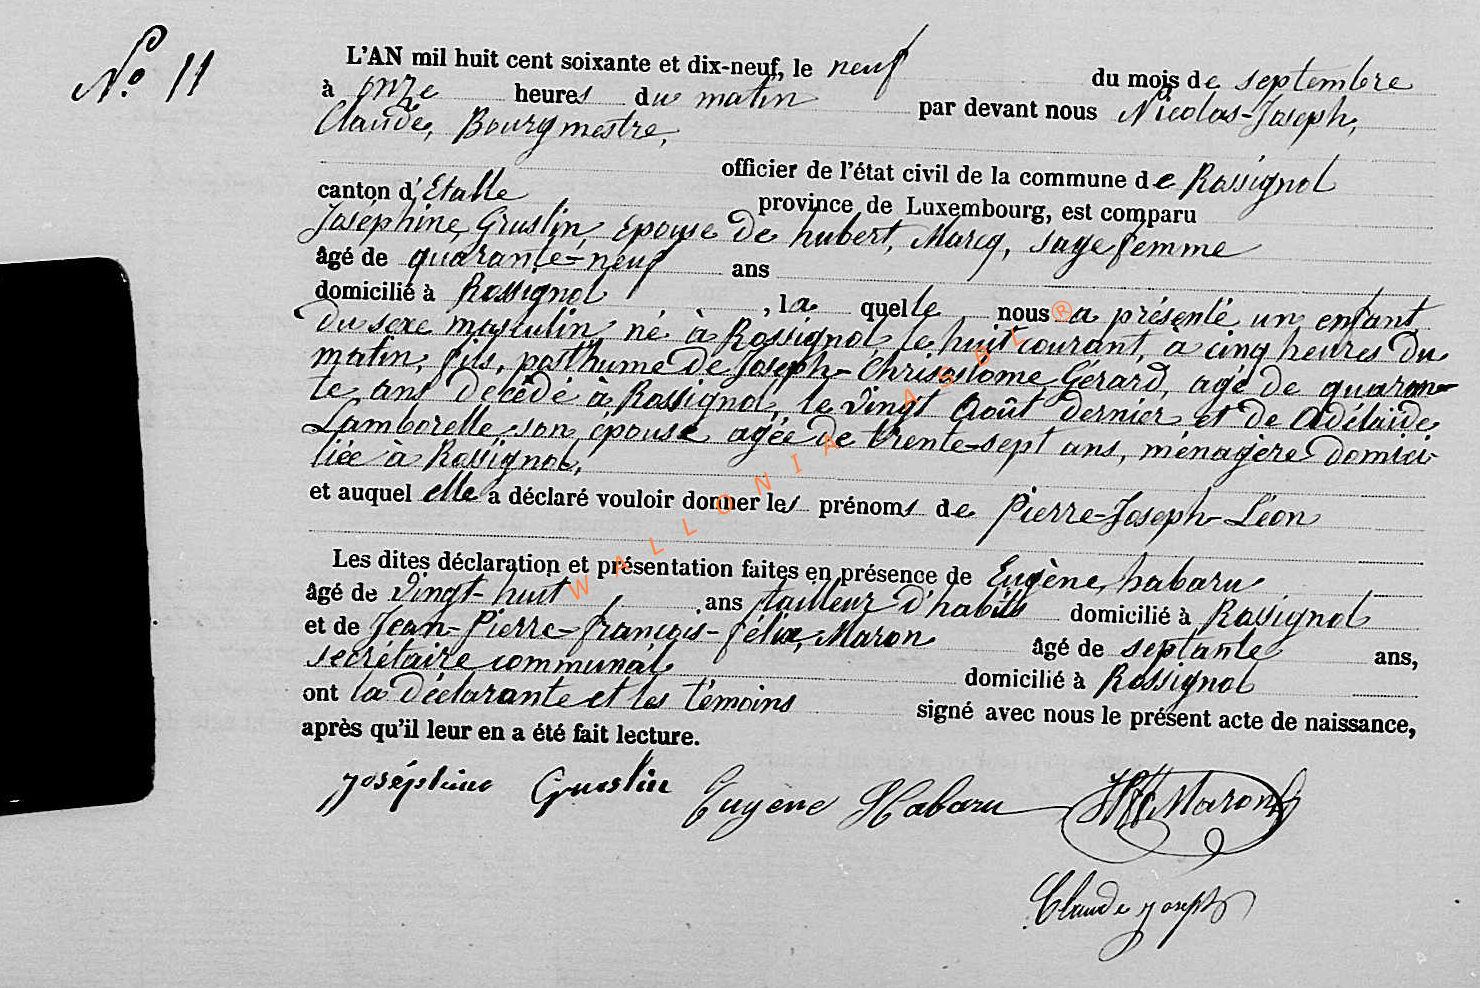 N° 11
L'AN mil huit cent soixante et dix-neuf, le neuf du mois de septembre
à onze heures du matin par devant nous Nicolas-Joseph,
Claude, Bourgmestre,
officier de l'état civil de la commune de Rossignol
canton d'Etalle province de Luxembourg, est comparu
Joséphine, Gruslin, épouse de hubert, Marcq, sage femme
âgé de quarante-neuf ans
domicilié à Rossignol, la quelle nous a présenté un enfant
du sexe masculin, né à Rossignol, le huit courant, à cinq heures du
matin, fils, posthume de Joseph-Chrisostome Gerard, agé de quaran-
te ans décédé à Rossignol, le vingt Août dernier et de Adélaïde
Lamborelle son épouse agée de trente-sept ans, ménagère domici-
liée à Rossignol,
et auquel elle a déclaré vouloir donner les prénoms de Pierre-Joseph-Léon
Les dites déclaration et présentation faites en présence de Eugène, habaru
âgé de vingt-huit, ans tailleur d'habits domicilié à Rossignol
et de Jean-Pierre-françois-félix, Maron âgé de septante ans,
secrétaire communal domicilié à Rossignol
ont la déclarante et les témoins signé avec nous le présent acte de naissance,
après qu'il leur en a été fait lecture.
Joséphine Gruslin Eugène Habaru Maron
Claude joseph
WALLONIA ASBL ®